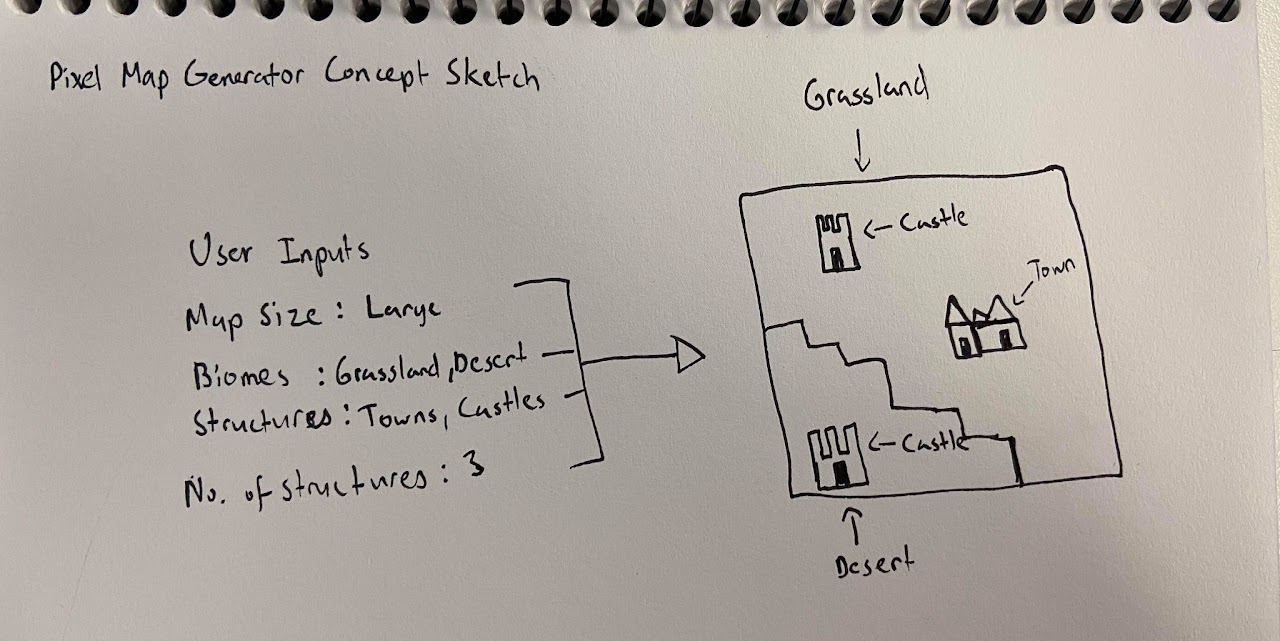 Pixel Map Generator Concept Sketch
User Inputs
Map Size : Large
Biomes : Grassland, Desert
Structures : Towns, Castles
No. of structures : 3
Grassland
← Castle
Town
← Castle
Desert